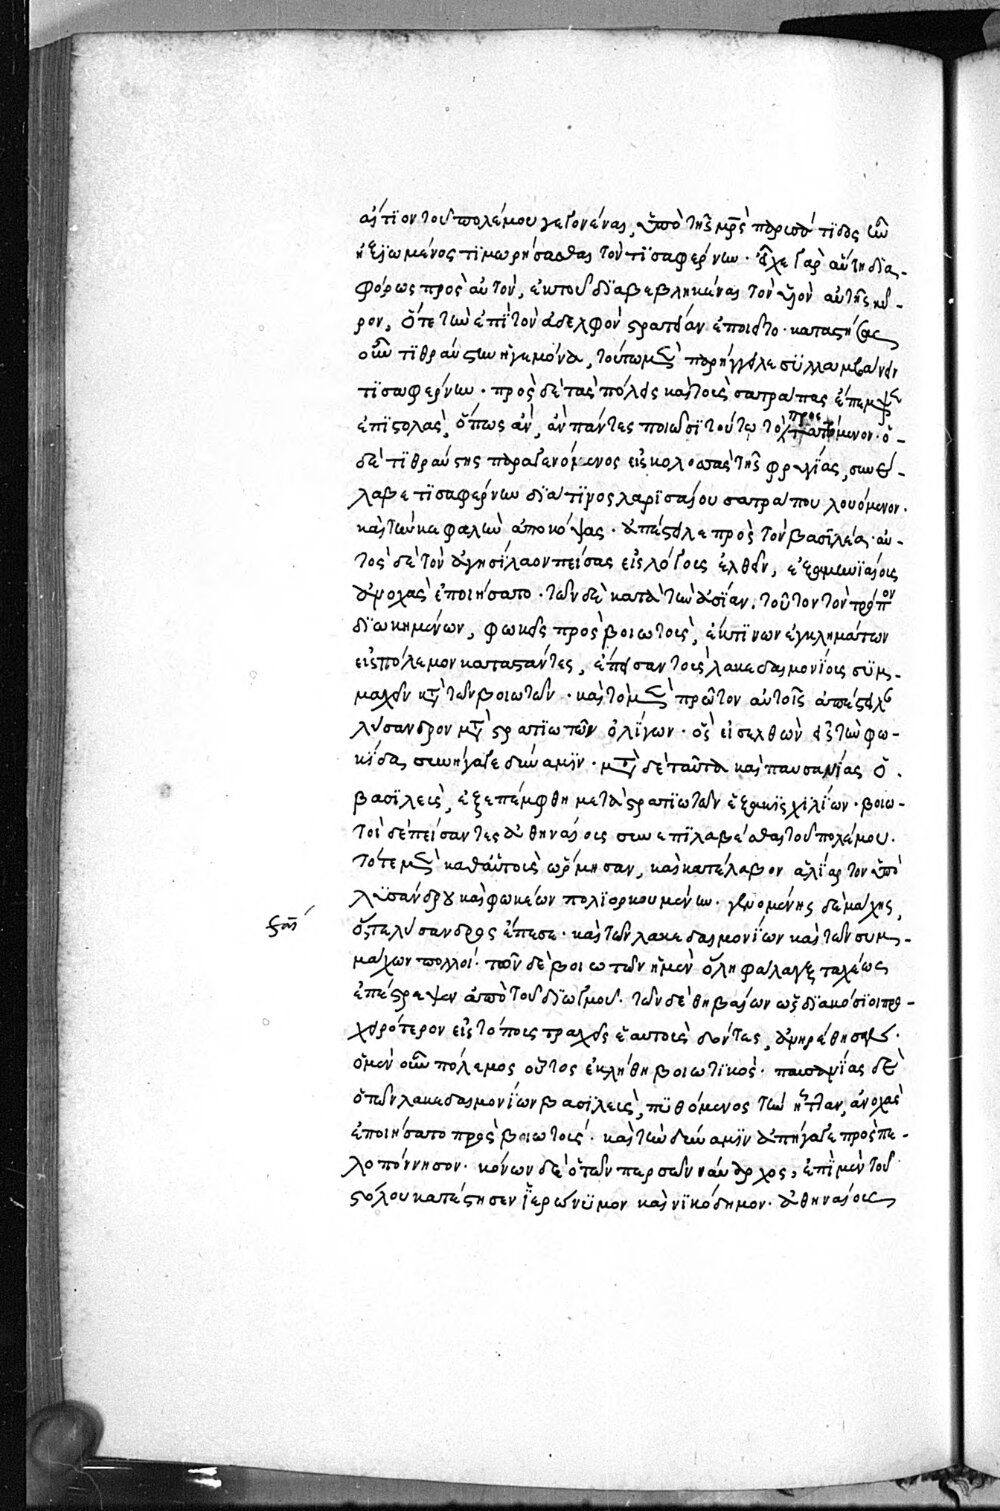 αἴτιον τοῦ πολέμου γεγονέναι, ὑπὸ τῆς μρ̅ς παρισάτιδος ἦν
ἠξιωμένος τιμωρήσασθαι τὸν τισαφέρνην· εἶχε γὰρ αὕτη δια-
φόρως πρὸς αὐτὸν, ἐκ τοῦ διαβεβληκέναι τὸν υἱὸν αὐτῆς κῦ-
ρον, ὅτε τὴν ἐπὶ τὸν ἀδελφὸν στρατείαν ἐποιεῖτο· καταστήσας
οὖν τιθραύστην ἡγεμόνα, τούτῳ μὲν παρήγγειλε συλλαμβάνειν
τισαφέρνην· πρὸς δὲ τὰς πόλεις καὶ τοὺς σατράπας ἔπεμψεν
ἐπιστολὰς, ὅπως ἂν, ἅπαντες ποιῶσι τούτῳ τὸ προσταττόμενον· ὁ-
δὲ τιθραύστης παραγενόμενος εἰς κολοσσὰς τῆς φρυγίας, συνέ-
λαβε τισαφέρνην διά τινος λαρισσαίου σατράπου λουόμενον·
καὶ τὴν κεφαλὴν ἀποκόψας· ἀπέστειλε πρὸς τὸν βασιλέα· αὐ-
τὸς δὲ τὸν ἀγησίλαον πείσας εἰς λόγους ἐλθεῖν, ἑξαμηνιαίους
ἀνοχὰς ἐποιήσατο· τῶν δὲ κατὰ τὴν ἀσίαν, τοῦτον τὸν τρόπον
διῳκημένων, φωκεῖς πρὸς βοιωτοὺς, ἔκ τινων ἐγκλημάτων
εἰς πόλεμον καταστάντες, ἔπεισαν τοὺς λακεδαιμονίους συμ-
μαχεῖν κατὰ τῶν βοιωτῶν· καὶ τὸ μὲν πρῶτον αὐτοῖς ἀπέστειλαν
λύσανδρον μετὰ στρατιωτῶν ὀλίγων· ὃς εἰσελθὼν εἰς τὴν φω-
κίδα, συνήγαγε δύναμιν· μετὰ δὲ ταῦτα καὶ παυσανίας ὁ
βασιλεὺς, ἐξεπέμφθη μετὰ στρατιωτῶν ἑξακισχιλίων· βοιω-
τοὶ δὲ πείσαντες ἀθηναίους συνεπιλαβέσθαι τοῦ πολέμου·
τότε μὲν καθ' αὑτοὺς ὥρμησαν, καὶ κατέλαβον ἁλίαρτον ὑπὸ
λυσάνδρου καὶ φωκέων πολιορκουμένην· γενομένης δὲ μάχης,
ὅ,τε λύσανδρος ἔπεσε· καὶ τῶν λακεδαιμονίων καὶ τῶν συμ-
μάχων πολλοί· τῶν δὲ βοιωτῶν ἡ μὲν ὅλη φάλαγξ ταχέως
ἐπέστρεψεν ἀπὸ τοῦ διωγμοῦ· τῶν δὲ θηβαίων ὡς διακόσιοι προ-
χειρότερον εἰς τόπους τραχεῖς ἑαυτοὺς δόντες, ἀνῃρέθησαν·
ὁ μὲν οὖν πόλεμος οὗτος ἐκλήθη βοιωτικός· παυσανίας δὲ
ὁ τῶν λακεδαιμονίων βασιλεὺς, πυθόμενος τὴν ἧτταν, ἀνοχὰς
ἐποιήσατο πρὸς βοιωτούς· καὶ τὴν δύναμιν ἀπήγαγε πρὸς πε-
λοπόννησον· κόνων δὲ ὁ τῶν περσῶν ναύαρχος, ἐπὶ μὲν τοῦ
στόλου κατέστησεν ἱερώνυμον καὶ νικόδημον· ἀθηναίους